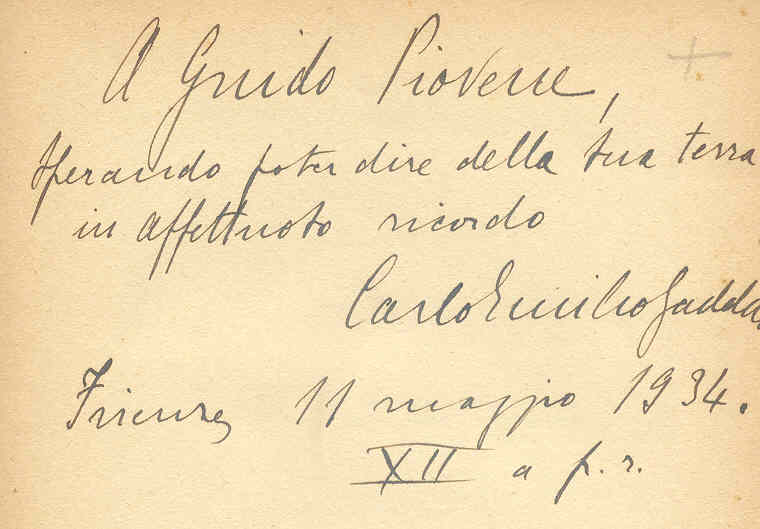 A Guido Piovene,
sperando poter dire della tua terra
in affettuoso ricordo
Carlo Emilio Gadda.
Firenze, 11 maggio 1934.
XII a f. r.